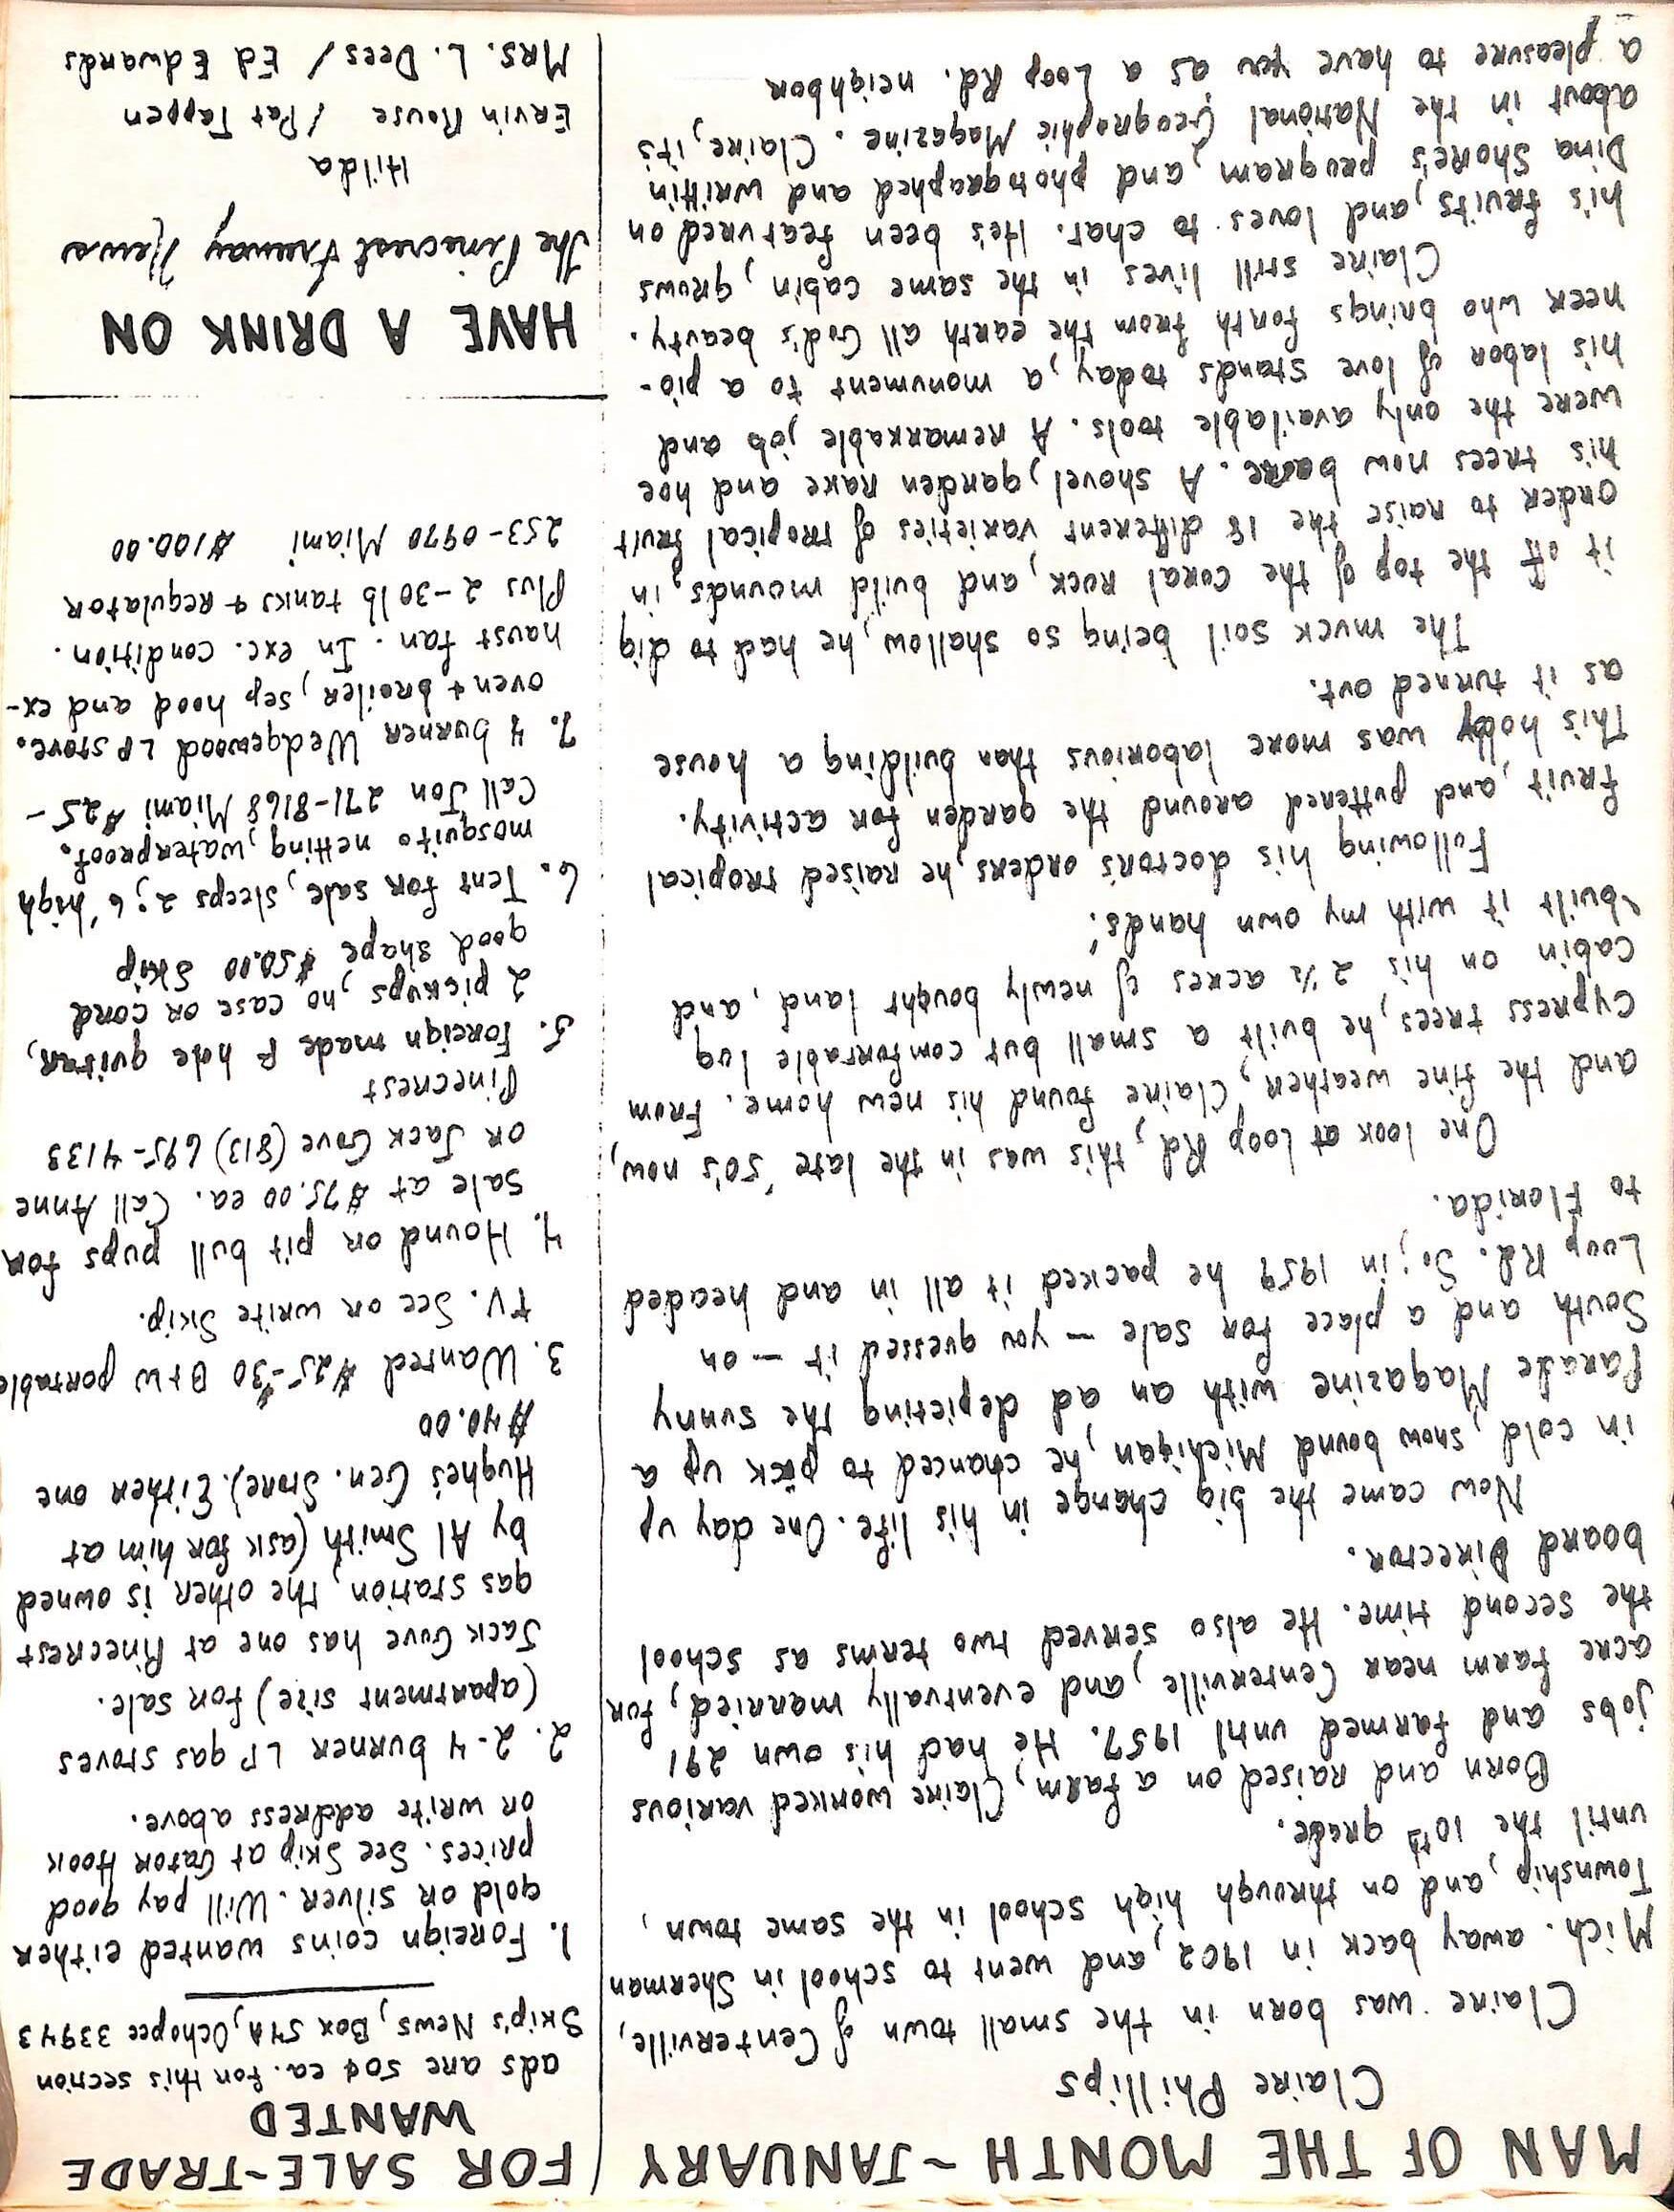 MAN OF THE MONTH - JANUARY
Claire Phillips
Claire was born in the small town of Centerville,
Mich. away back in 1902, and went to school in Sherman
Township, and on through high school in the same town,
until the 10th grade.
Born and raised on a farm, Claire worked various
jobs and farmed until 1957. He had his own 291
acre farm near Centerville, and eventually married, for
the second time. He also served two terms as school
board Director.
Now came the big change in his life. One day up
in cold, snow bound Michigan, he chanced to pick up a
Parade Magazine with an ad depicting the sunny
South and a place for sale - you guessed it - on
Loop Rd. So, in 1959 he packed it all in and headed
to Florida.
One look at Loop Rd, this was in the late '50's now,
and the fine weather, Claire found his new home. From
Cypress trees, he built a small but comfortable log
cabin on his 2½ acres of newly bought land, and
"built it with my own hands."
Following his doctor's orders, he raised tropical
fruit, and puttered around the garden for activity.
This hobby was more laborious than building a house
as it turned out.
The muck soil being so shallow, he had to dig
it off the top of the coral rock, and build mounds, in
order to raise the 18 different varieties of tropical fruit
his trees now bare. A shovel, garden rake and hoe
were the only available tools. A remarkable job and
his labor of love stands today, a monument to a pio-
neer who brings forth from the earth all God's beauty.
Claire still lives in the same cabin, grows
his fruits, and loves to chat. He's been featured on
Dina Shore's program, and photographed and writtin
about in the National Geographic Magazine. Claire, it's
a pleasure to have you as a Loop Rd. neighbor
FOR SALE-TRADE
WANTED
ads are 50¢ ea. for this section
Skip's News, Box 54A, Ochopee 33943
1. Foreign coins wanted either
gold or silver. Will pay good
prices. See Skip at Gator Hook
or write address above.
2. 2-4 burner LP gas stoves
(apartment size) for sale.
Jack Gove has one at Pinecrest
gas station, the other is owned
by Al Smith (ask for him at
Hughe's Gen. Store). Either one
$40.00
3. Wanted $25-$30 B+W portable
TV. See or write Skip.
4. Hound or pit bull pups for
sale at $75.00 ea. Call Anne
or Jack Gove (813) 695-4133
Pinecrest
5. Foreign made F hole guitar,
2 pickups, no case or cord
good shape $50.00 Skip
6. Tent for sale, sleeps 2; 6' high
mosquito netting, waterproof.
Call Jon 271-8168 Miami $25-
7. 4 burner Wedgewood LP stove.
oven + broiler, sep hood and ex-
haust fan. In exc. condition.
Plus 2-30 lb tanks + regulator
253-0970 Miami $100.00
HAVE A DRINK ON
The Pinecrest Freeway News
Hilda
Ervin Rouse / Pat Tappen
Mrs. L. Dees / Ed Edwards